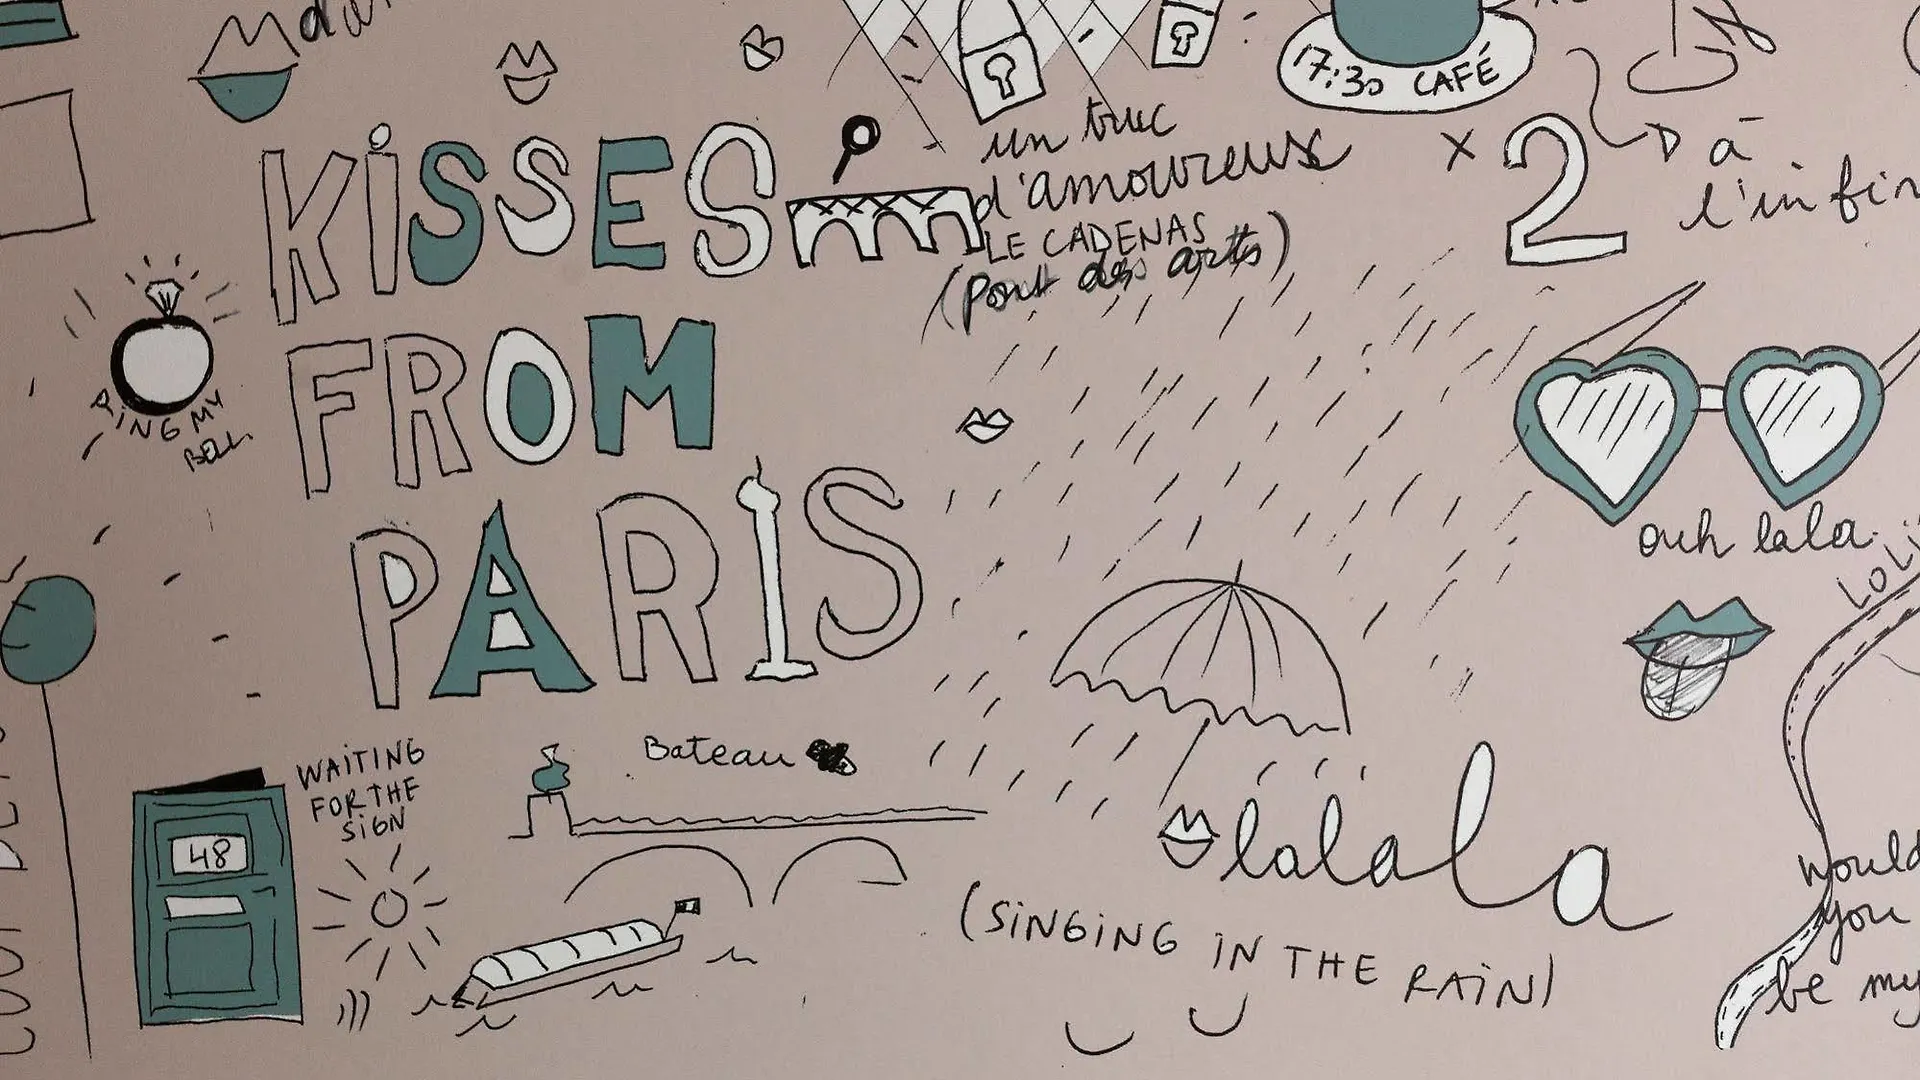 17:30 CAFÉ
KISSES
FROM
PARIS
un truc
d'amoureux
LE CADENAS
(Pont des arts)
x 2
à
RING MY
BELL.
ouh lala
WAITING
FOR THE
SIGN
48
Bateau
lalalala
(SINGING IN THE RAIN)
would
you
be my